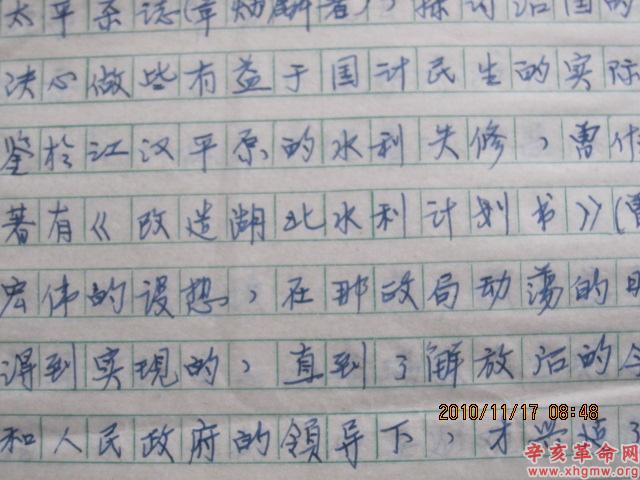 太平杂志(章炳麟著),探讨治国的
决心做些有益于国计民生的实际
鉴於江汉平原的水利失修,曹作
著有《改造湖北水利计划书》(
宏伟的设想,在那政局动荡的时
得到实現的,直到了解放后的今
和人民政府的领导下,才兴造了
2010/11/17 08:48
辛亥革命网
www.xhgmw.org